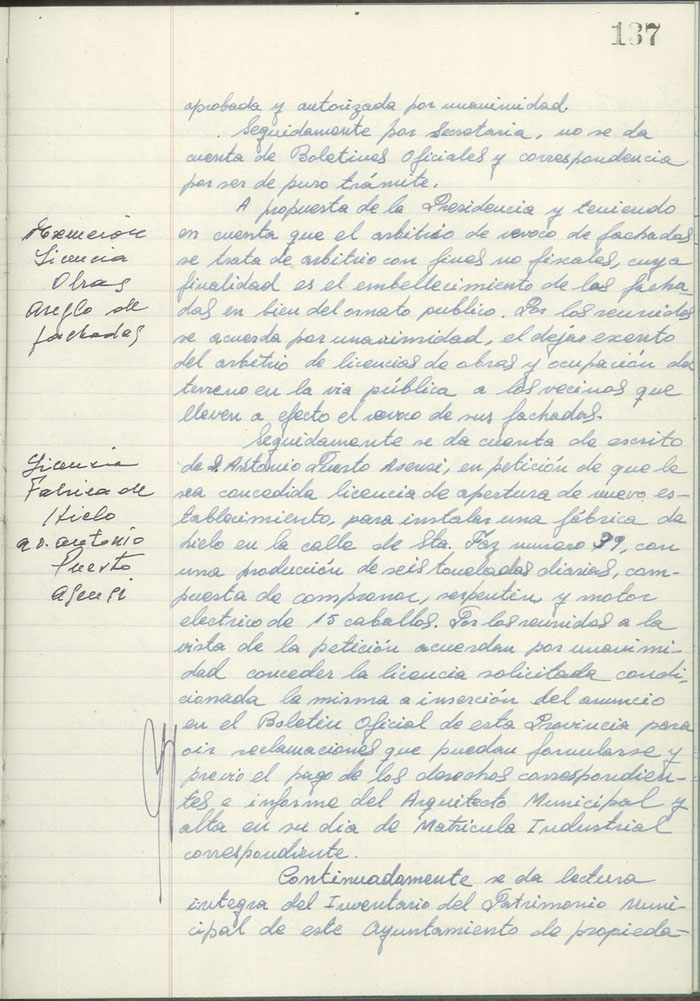 137
aprobada y autorizada por unanimidad
Seguidamente por Secretaria, no se da
cuenta de Boletines Oficiales y correspondencia
por ser de puro trámite.
A propuesta de la Presidencia y teniendo
en cuenta que el arbitrio de revoco de fachadas
se trata de arbitrio con fines no fiscales, cuya
finalidad es el embellecimiento de las facha-
das en bien del ornato publico. Por los reunidos
se acuerda por unanimidad, el dejar exento
del arbitrio de licencias de obras y ocupación de
terreno en la via pública a los vecinos que
lleven a efecto el revoco de sus fachadas.
Exención
Licencia
Obras
Areglo de
fachadas
Seguidamente se da cuenta de escrito
de D. Antonio Puerto Asensi, en petición de que le
sea concedida licencia de apertura de nuevo es-
tablecimiento, para instalar una fábrica de
hielo en la calle de Sta. Faz numero 39, con
una produción de seis toneladas diarias, com-
puesta de compresor, serpentin y motor
electrico de 15 caballos. Por los reunidos a la
vista de la petición acuerdan por unanimi-
dad conceder la licencia solicitada condi-
cionada la misma a inserción del anuncio
en el Boletin Oficial de esta Provincia para
oir reclamaciones que puedan formularse y
previo el pago de los derechos correspondien-
tes e informe del Arquitecto Municipal y
alta en su dia de Matricula Industrial
correspondiente.
Licencia
Fabrica de
Hielo
a D. Antonio
Puerto
Asensi
Continuadamente se da lectura
integra del Inventario del Patrimonio Muni-
cipal de este Ayuntamiento de propieda-